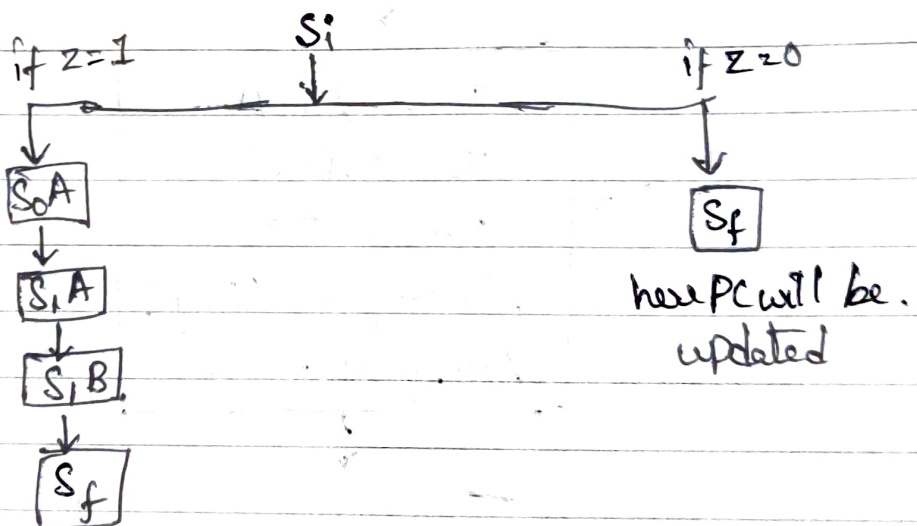 Si
if z=1
if z=0
S₀A
S₁A
S₁B
Sf
Sf
here PC will be.
updated